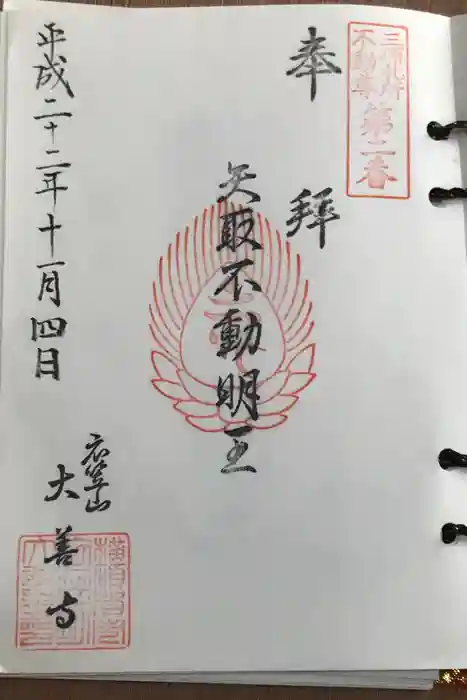 三浦札所
不動尊
第二番
奉拝
矢取不動明王
平成二十二年十一月四日
衣笠山
大善寺